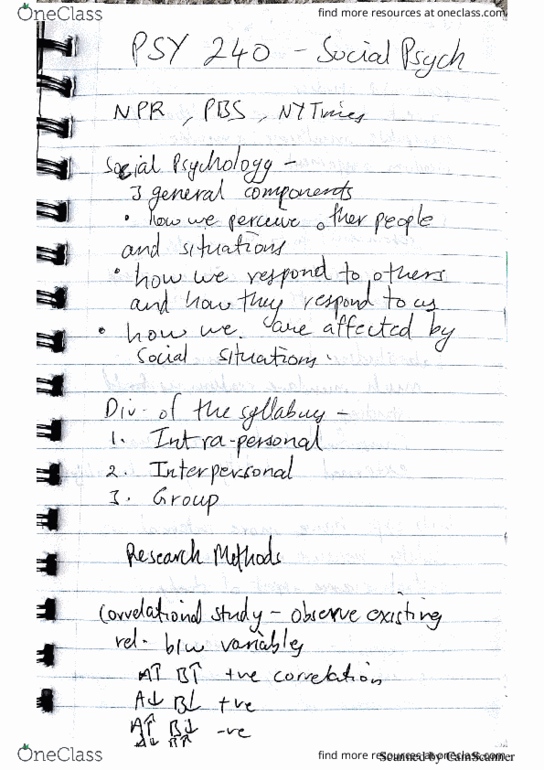 OneClass
find more resources at oneclass.com
PSY 240 - Social Psych
NPR, PBS, NYTimes
Social Psychology -
3 general components
• how we perceive other people
and situations
• how we respond to others
and how they respond to us
• how we are affected by
Social Situations.
Div. of the syllabus -
1. Intra-personal
2. Interpersonal
3. Group
Research Methods
Correlational study - observe existing
rel. b/w variables
A↑ B↑ +ve correlation
A↓ B↓ +ve
A↑ B↓ -ve
A↓ B↑
OneClass
find more resources at oneclass.com
Scanned by CamScanner